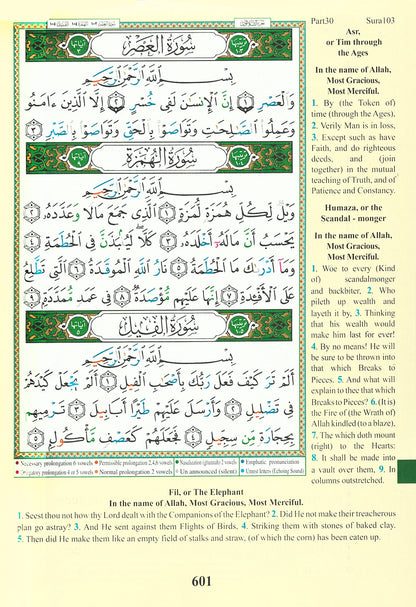 Part30 Sura103
سُورَةُ العَصْرِ
بِسْمِ ٱللَّهِ ٱلرَّحْمَٰنِ ٱلرَّحِيمِ
وَٱلْعَصْرِ ١ إِنَّ ٱلْإِنسَٰنَ لَفِى خُسْرٍ ٢ إِلَّا ٱلَّذِينَ ءَامَنُوا۟
وَعَمِلُوا۟ ٱلصَّٰلِحَٰتِ وَتَوَاصَوْا۟ بِٱلْحَقِّ وَتَوَاصَوْا۟ بِٱلصَّبْرِ ٣
سُورَةُ الهُمَزَةِ
بِسْمِ ٱللَّهِ ٱلرَّحْمَٰنِ ٱلرَّحِيمِ
وَيْلٌ لِّكُلِّ هُمَزَةٍ لُّمَزَةٍ ١ ٱلَّذِى جَمَعَ مَالًا وَعَدَّدَهُۥ ٢
يَحْسَبُ أَنَّ مَالَهُۥٓ أَخْلَدَهُۥ ٣ كَلَّا لَيُنۢبَذَنَّ فِى ٱلْحُطَمَةِ ٤
وَمَآ أَدْرَىٰكَ مَا ٱلْحُطَمَةُ ٥ نَارُ ٱللَّهِ ٱلْمُوقَدَةُ ٦ ٱلَّتِى تَطَّلِعُ
عَلَى ٱلْأَفْـِٔدَةِ ٧ إِنَّهَا عَلَيْهِم مُّؤْصَدَةٌ ٨ فِى عَمَدٍ مُّمَدَّدَةٍۭ ٩
سُورَةُ الفِيلِ
بِسْمِ ٱللَّهِ ٱلرَّحْمَٰنِ ٱلرَّحِيمِ
أَلَمْ تَرَ كَيْفَ فَعَلَ رَبُّكَ بِأَصْحَٰبِ ٱلْفِيلِ ١ أَلَمْ يَجْعَلْ كَيْدَهُمْ
فِى تَضْلِيلٍ ٢ وَأَرْسَلَ عَلَيْهِمْ طَيْرًا أَبَابِيلَ ٣ تَرْمِيهِم
بِحِجَارَةٍ مِّن سِجِّيلٍ ٤ فَجَعَلَهُمْ كَعَصْفٍ مَّأْكُولٍۭ ٥
Necessary prolongation 6 vowels Permissible prolongation 2,4,6 vowels Nasalization (ghunnah) 2 vowels Emphatic pronunciation
Obligatory prolongation 4 or 5 vowels Normal prolongation 2 vowels Un announced (silent) Unrest letters (Echoing Sound)
Asr,
or Tim through
the Ages
In the name of Allah,
Most Gracious,
Most Merciful.
1. By (the Token of)
time (through the Ages),
2. Verily Man is in loss,
3. Except such as have
Faith, and do righteous
deeds, and (join
together) in the mutual
teaching of Truth, and of
Patience and Constancy.
Humaza, or the
Scandal - monger
In the name of Allah,
Most Gracious,
Most Merciful.
1. Woe to every (Kind
of) scandalmonger
and backbiter, 2. Who
pileth up wealth and
layeth it by, 3. Thinking
that his wealth would
make him last for ever!
4. By no means! He will
be sure to be thrown into
that which Breaks to
Pieces. 5. And what will
explain to thee that which
Breaks to Pieces? 6. (It is)
the Fire of (the Wrath of)
Allah kindled (to a blaze),
7. The which doth mount
(right) to the Hearts:
8. It shall be made into
a vault over them, 9. In
columns outstretched.
Fil, or The Elephant
In the name of Allah, Most Gracious, Most Merciful.
1. Seest thou not how thy Lord dealt with the Companions of the Elephant? 2. Did He not make their treacherous
plan go astray? 3. And He sent against them Flights of Birds, 4. Striking them with stones of baked clay.
5. Then did He make them like an empty field of stalks and straw, (of which the corn) has been eaten up.
601